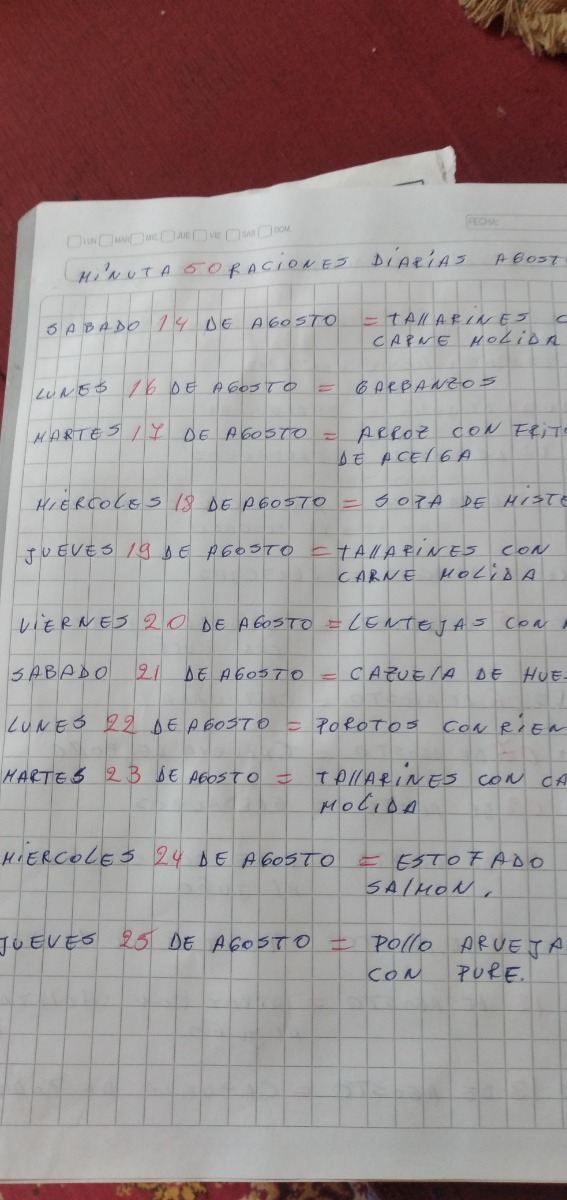 LUN MAR MIE JUE VIE SAB DOM FECHA:
MINUTA 50 RACIONES DIARIAS AGOST
SABADO 14 DE AGOSTO = TALLARINES C
CARNE MOLIDA
LUNES 16 DE AGOSTO = GARBANZOS
MARTES 17 DE AGOSTO = ARROZ CON FRITO
DE ACELGA
MIERCOLES 18 DE AGOSTO = SOPA DE MISTE
JUEVES 19 DE AGOSTO = TALLARINES CON
CARNE MOLIDA
VIERNES 20 DE AGOSTO = LENTEJAS CON
SABADO 21 DE AGOSTO = CAZUELA DE HUE
LUNES 22 DE AGOSTO = POROTOS CON RIEN
MARTES 23 DE AGOSTO = TALLARINES CON CA
MOLIDA
MIERCOLES 24 DE AGOSTO = ESTOFADO
SALMON.
JUEVES 25 DE AGOSTO = POLLO ARVEJA
CON PURE.